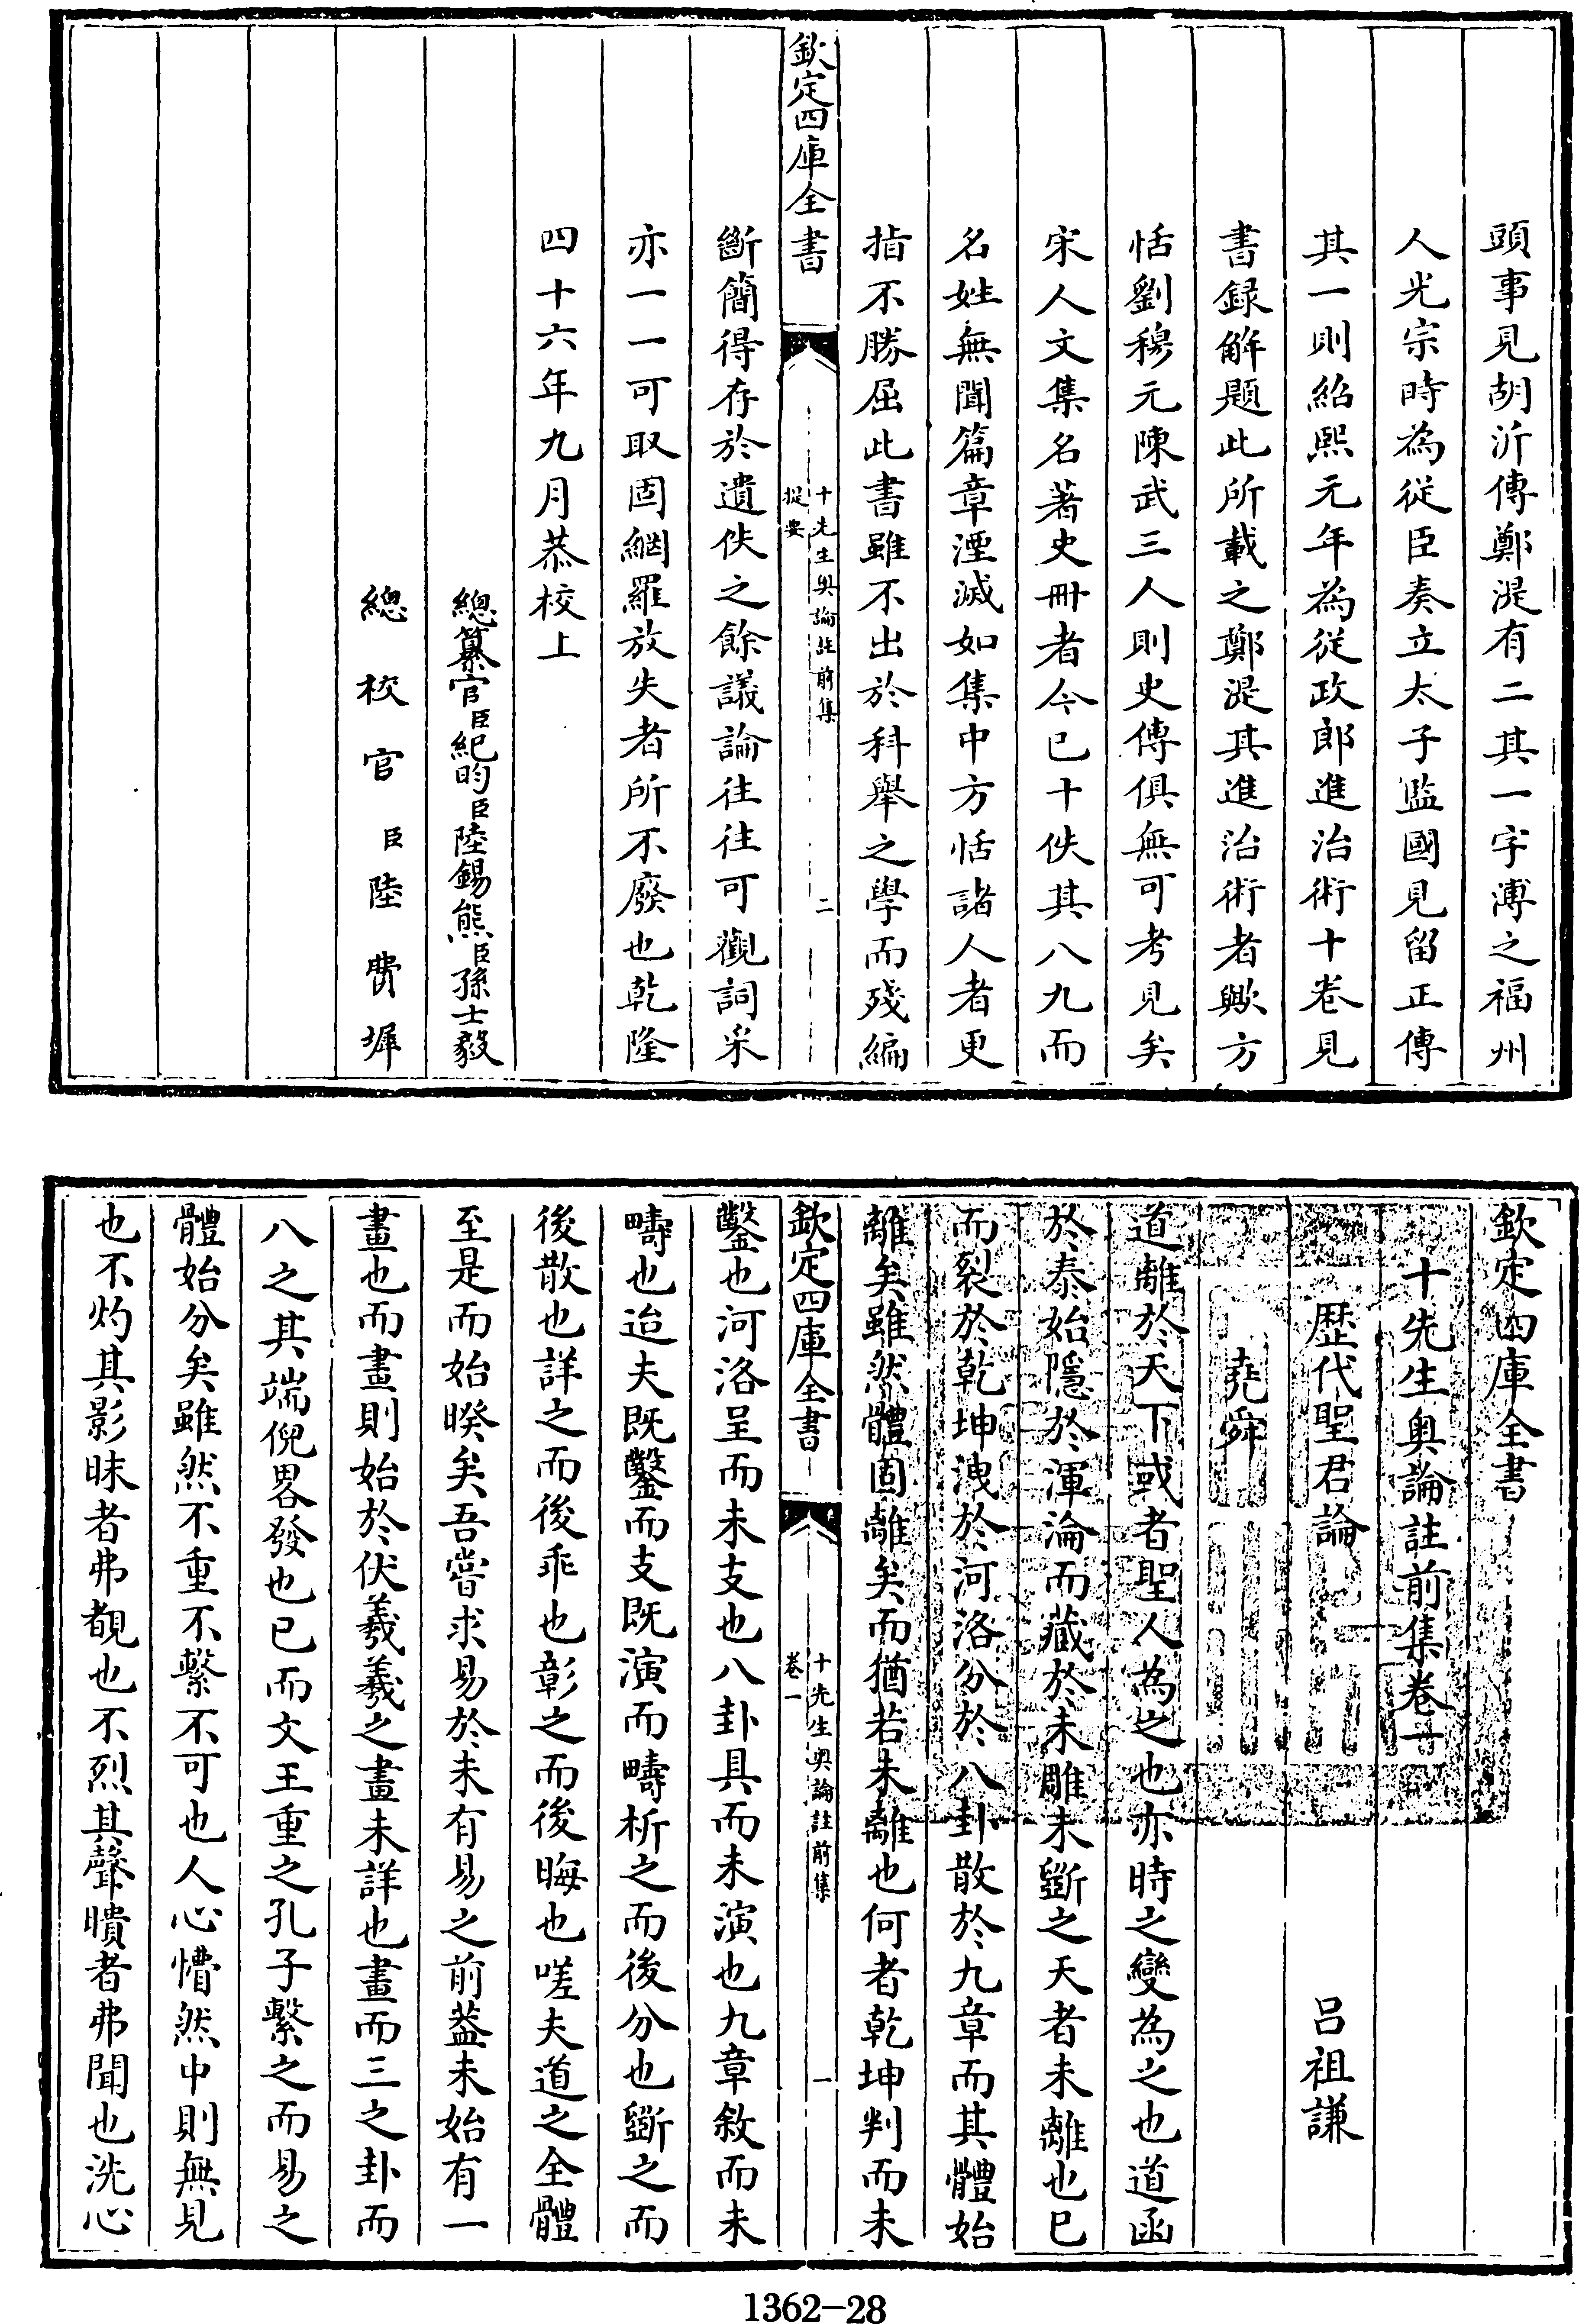 頭事見胡沂傳鄭湜有二其一字溥之福州
人光宗時為從臣奏立太子監國見留正傳
其一則紹熙元年為從政郎進治術十卷見
書録解題此所載之鄭湜其進治術者歟方
恬劉穆元陳武三人則史傳俱無可考見矣
宋人文集名著史冊者今已十佚其八九而
名姓無聞篇章湮滅如集中方恬諸人者更
指不勝屈此書雖不出於科舉之學而殘編
欽定四庫全書
十先生奥論註前集
提要
二
斷簡得存於遺佚之餘議論往往可觀詞采
亦一一可取固網羅放失者所不廢也乾隆
四十六年九月恭校上
總纂官臣紀昀臣陸錫熊臣孫士毅
總校官臣陸費墀
欽定四庫全書
十先生奥論註前集卷一
歴代聖君論 吕祖謙
堯舜
道離於天下或者聖人為之也亦時之變為之也道函
於泰始隱於渾淪而藏於未雕未斵之天者未離也已
而裂於乾坤洩於河洛分於八卦散於九章而其體始
離矣雖然體固離矣而猶若未離也何者乾坤判而未
欽定四庫全書
十先生奥論註前集
卷一
一
鑿也河洛呈而未支也八卦具而未演也九章敘而未
疇也迨夫既鑿而支既演而疇析之而後分也斵之而
後散也詳之而後乖也彰之而後晦也嗟夫道之全體
至是而始暌矣吾嘗求易於未有易之前葢未始有一
畫也而畫則始於伏羲羲之畫未詳也畫而三之卦而
八之其端倪畧發也已而文王重之孔子繫之而易之
體始分矣雖然不重不繫不可也人心懵然中則無見
也不灼其影昧者弗覩也不烈其聲聵者弗聞也洗心
1362-28